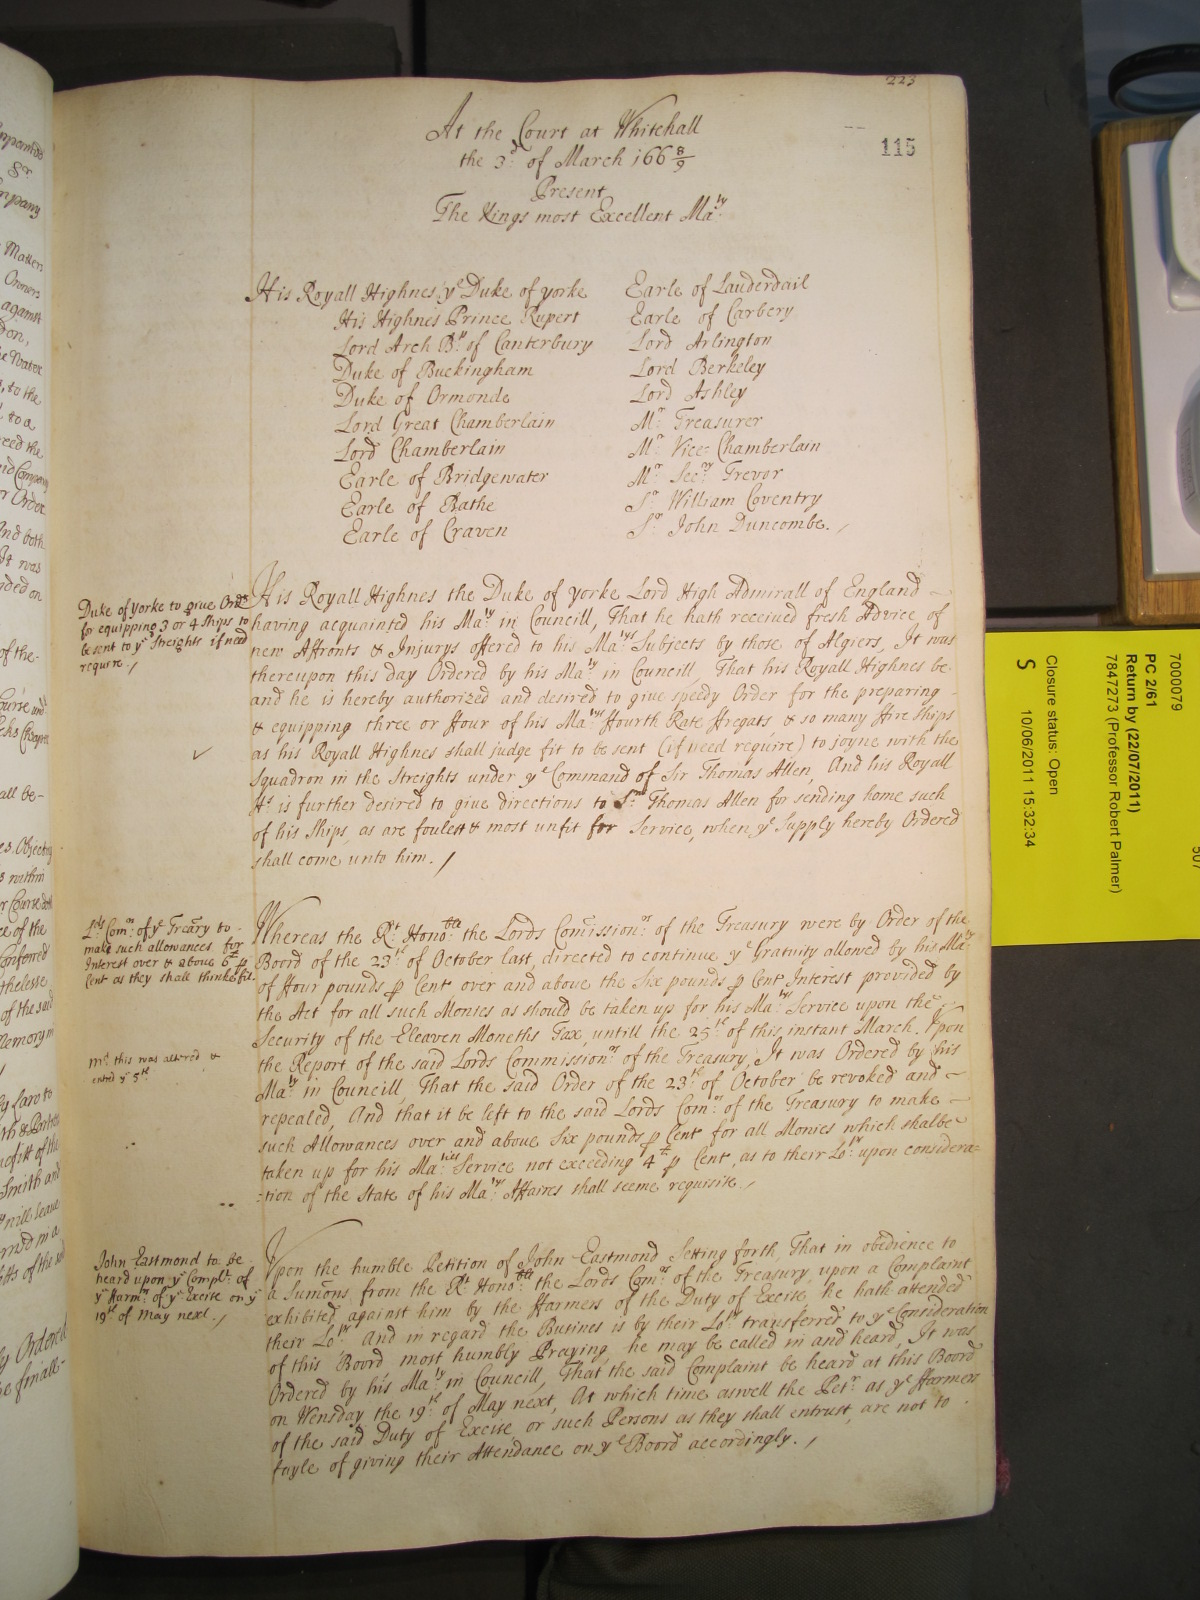 223
115
At the Court at Whitehall
the 3d. of March 166 8/9
Present
The Kings most Excellent Maty.
His Royall Highnes ye Duke of yorke
His Highnes Prince Rupert
Lord Arch Bp. of Canterbury
Duke of Buckingham
Duke of Ormonde
Lord Great Chamberlain
Lord Chamberlain
Earle of Bridgewater
Earle of Bathe
Earle of Craven
Earle of Lauderdail
Earle of Carbery
Lord Arlington
Lord Berkeley
Lord Ashley
Mr. Treasurer
Mr. Vice-Chamberlain
Mr. Secry. Trevor
Sr. William Coventry
Sr. John Duncombe.
Duke of yorke to give Ordrs
for equipping 3 or 4 Ships to
be sent to ye Streights if need
require
His Royall Highnes the Duke of yorke Lord High Admirall of England
having acquainted his Maty in Councill, That he hath received fresh Advice of
new Affronts & Injurys offered to his Matys Subjects by those of Algiers, It was
thereupon this day Ordered by his Maty in Councill, That his Royall Highnes be
and he is hereby authorized and desired to give speedy Order for the preparing
& equipping three or ffour of his Matys ffourth Rate ffregats, & so many ffire Ships
as his Royall Highnes shall judge fit to be sent (if need require) to joyne with the
Squadron in the Streights under ye Command of Sir Thomas Allen, And his Royall
Hs. is further desired to give directions to Sr. Thomas Allen for sending home such
of his Ships, as are foulest & most unfit for Service, when ye Supply hereby Ordered
shall come unto him.
Lds Comrs. of ye Treary to
make such allowances for
Interest over & above 6li p
Cent as they shall thinke fit.
md. this was altered &
entred ye 5th.
Whereas the Rt. Honoble. the Lords Comissionrs. of the Treasury were by Order of the
Boord of the 23th. of October last, directed to continue ye Gratuity allowed by his Maty
of ffour pounds p Cent over and above the Six pounds p Cent Interest provided by
the Act for all such Monies as should be taken up for his Matys Service upon the
Security of the Eleaven Moneths Tax, untill the 25th. of this instant March. Upon
the Report of the said Lords Commissionrs. of the Treasury, It was Ordered by his
Maty. in Councill, That the said Order of the 23th. of October be revoked and
repealed, And that it be left to the said Lords Comrs. of the Treasury to make
such Allowances over and above Six pounds p Cent for all Monies which shalbe
taken up for his Maties Service not exceeding 4li p Cent, as to their Lops. upon considera=
=tion of the State of his Matys Affaires shall seeme requisite.
John Eastmond to be
heard upon ye Complt. of
ye ffarmrs. of ye Excise on ye
19th of May next.
Upon the humble Petition of John Eastmond Setting forth, That in obedience to
a Sumons from the Rt Honoble. the Lords Comrs. of the Treasury, upon a Complaint
exhibited against him by the ffarmers of the Duty of Excise, he hath attended
their Lops. And in regard the Busines is by their Lops. transferred to ye Consideration
of this Boord, most humbly Praying, he may be called in and heard, It was
Ordered by his Maty in Councill, That the said Complaint be heard at this Boord
on Wensday the 19th. of May next, At which time aswell the Petr. as ye ffarmers
of the said Duty of Excise, or such Persons as they shall entrust, are not to
fayle of giving their Attendance on ye Boord accordingly.
7000079
PC 2/61
Return by (22/07/2011)
7847273 (Professor Robert Palmer)
Closure status: Open
S
10/06/2011 15:32:34
507